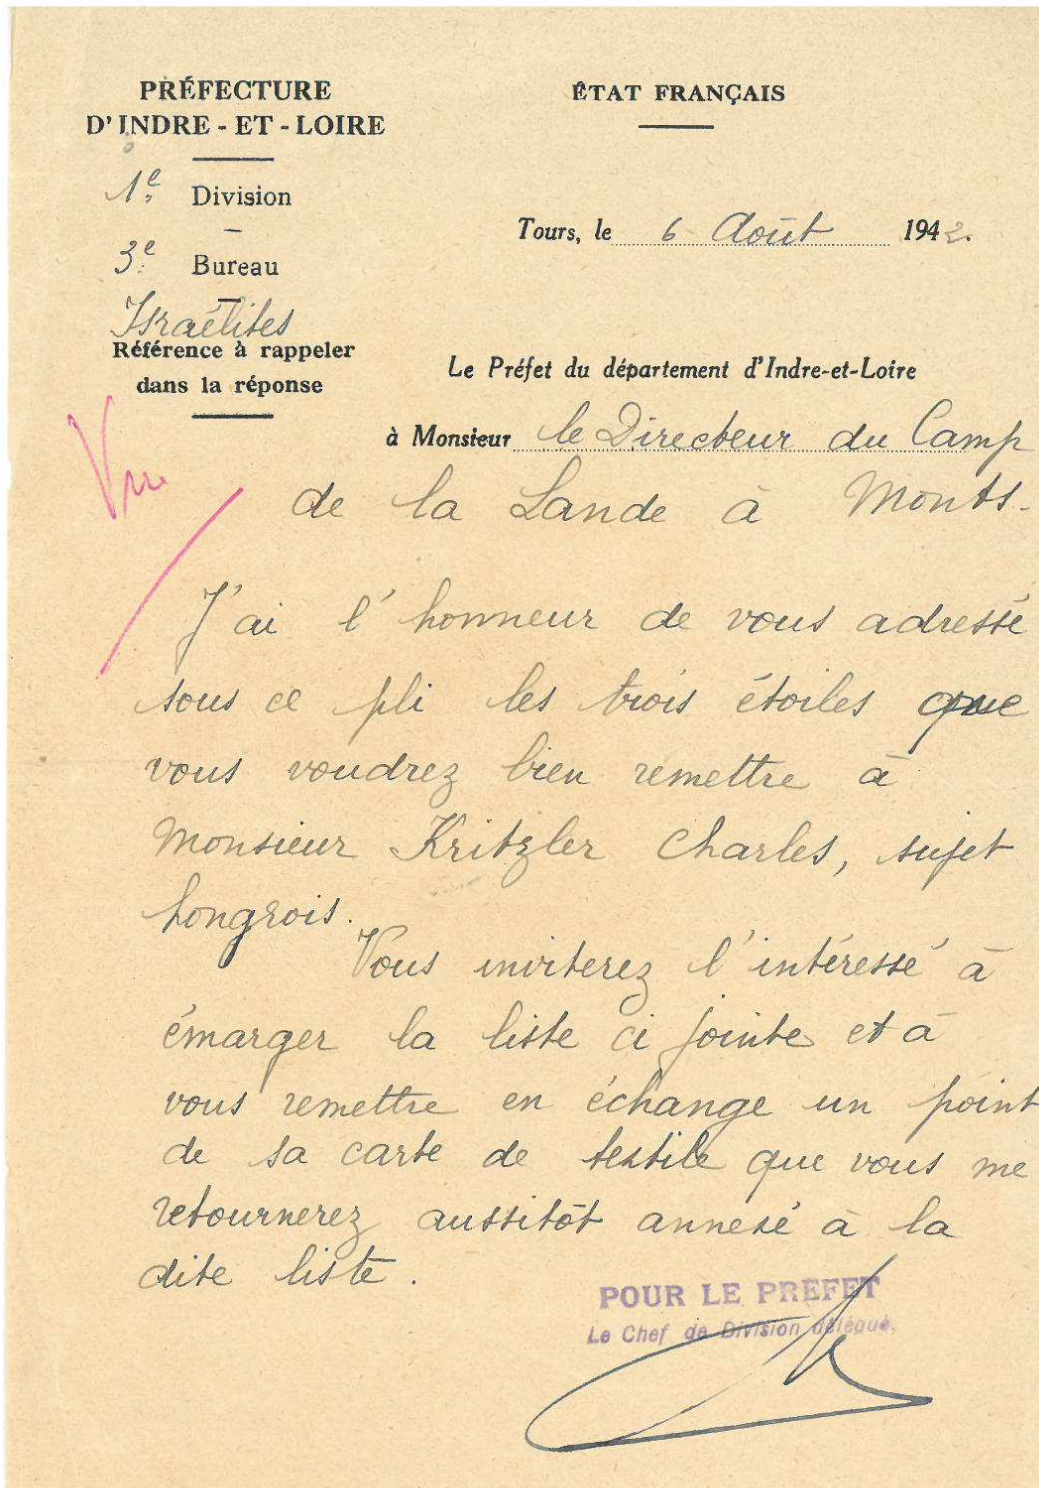 PRÉFECTURE
D'INDRE-ET-LOIRE
1e Division
3e Bureau
Israélites
Référence à rappeler
dans la réponse
ÉTAT FRANÇAIS
Tours, le 6 Août 1942.
Le Préfet du département d'Indre-et-Loire
à Monsieur le Directeur du Camp
de la Lande à Monts.
J'ai l'honneur de vous adressé
sous ce pli les trois étoiles que
vous voudrez bien remettre à
Monsieur Kritzler Charles, sujet
hongrois.
Vous inviterez l'intéressé à
émarger la liste ci jointe et à
vous remettre en échange un point
de sa carte de textile que vous me
retournerez aussitôt annexé à la
dite liste.
POUR LE PRÉFET
Le Chef de Division délégué.